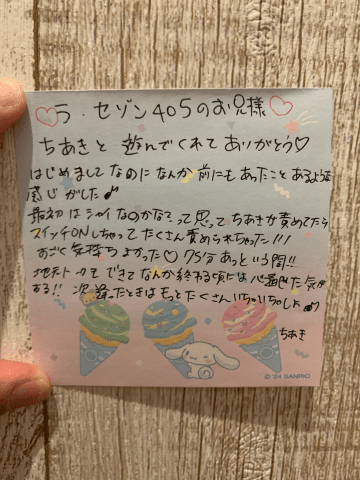 ♡ラ・セゾン405のお兄様♡
ちあきと 遊んでくれて ありがとう♡
はじめまして なのに なんか 前にも あったこと あるような
感じがした♪
最初は シャイ なのかな? って 思って ちあきが 責めてたら
スイッチONしちゃって たくさん 責められちゃった!!!
すごく 気持ち よかった♡ 75分 あっという間!!
できて なんか 終わる 頃には した 気が
する!! 次 逢ったときは もっと たくさん いちゃいちゃしよ♪
ちあき
© '24 SANRIO